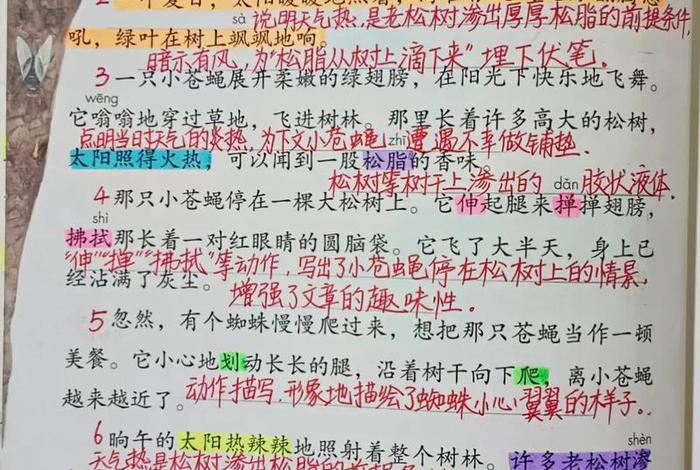 sà
说明天气热,是老松树渗出厚厚松脂的前提条件,
吼,绿叶在树上飒飒地响。
暗示有风,为"松脂从树上滴下来"埋下伏笔。
3一只小苍蝇展开柔嫩的绿翅膀,在阳光下快乐地飞舞。
wēng
它嗡嗡地穿过草地,飞进树林。那里长着许多高大的松树,
点明当时天气的炎热,为下文小苍蝇遭遇不幸做铺垫.
zhī
太阳照得火热,可以闻到一股松脂的香味。
松树等树干上渗出的胶状液体.
dǎn
4那只小苍蝇停在一棵大松树上。它伸起腿来掸掸翅膀,
shì
拂拭那长着一对红眼睛的圆脑袋。它飞了大半天,身上已
"伸""掸""拂拭"等动作,写出了小苍蝇停在松树上的情景,
经沾满了灰尘。
增强了文章的趣味性.
5忽然,有个蜘蛛慢慢爬过来,想把那只苍蝇当作一顿
美餐。它小心地划动长长的腿,沿着树干向下爬,离小苍蝇
越来越近了。
动作描写,形象地描绘了蜘蛛小心翼翼的样子.
shèn
6晌午的太阳热辣辣地照射着整个树林。许多老松树渗
天气热是松树渗出松脂的前提